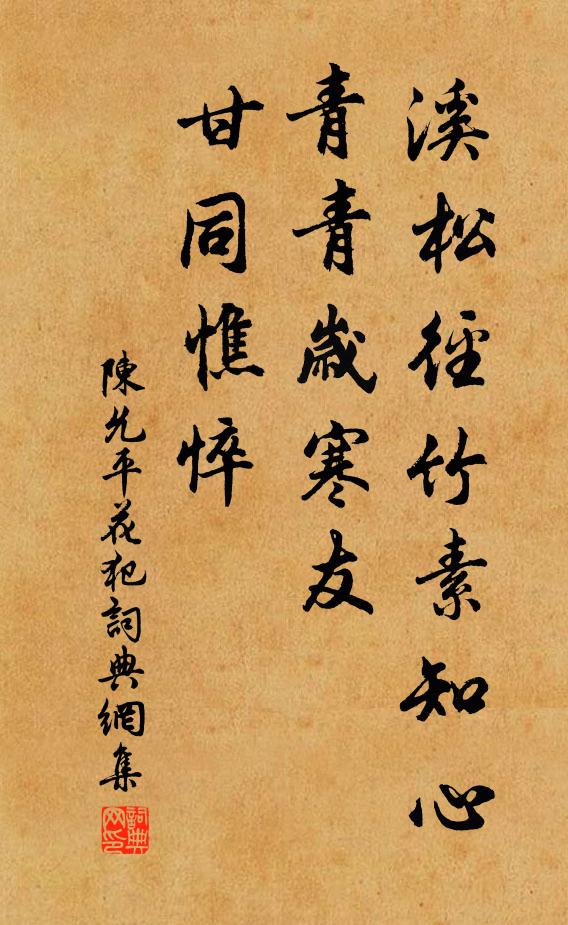 溪松徑竹素知心
青青歲寒友
甘同憔悴
陳允平花犯詞典網集
詞典网印